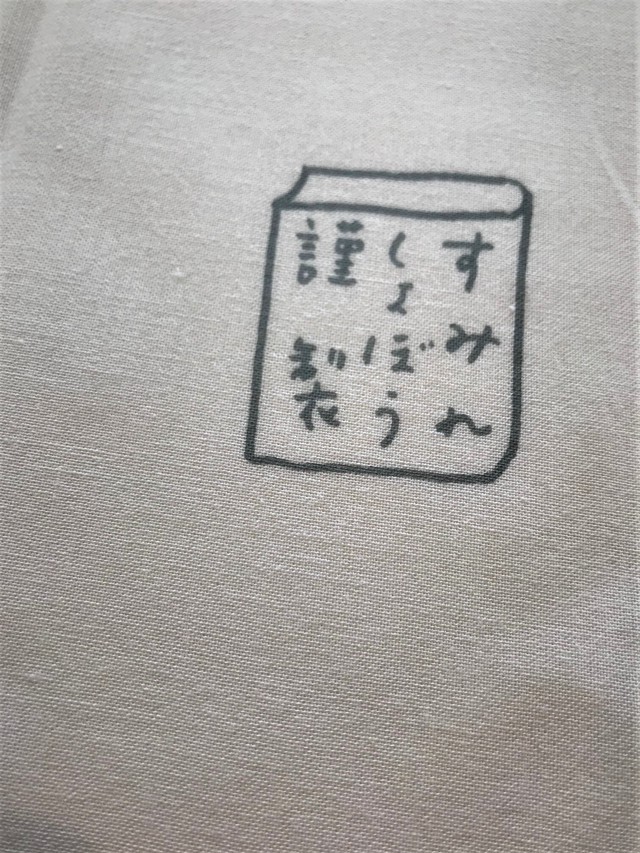 すみれ
しょぼう
謹製